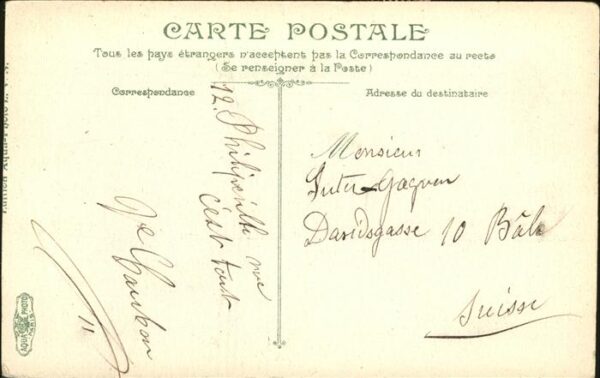 CARTE POSTALE
Tous les pays étrangers n'acceptent pas la Correspondance au recto
(Se renseigner à la Poste)
Correspondance
Adresse du destinataire
12. Philippeville vue
c'est tout
Monsieur
Suter-Gagneu
Davidsgasse 10 Bâle
Suisse
AQUA PHOTO
PARIS